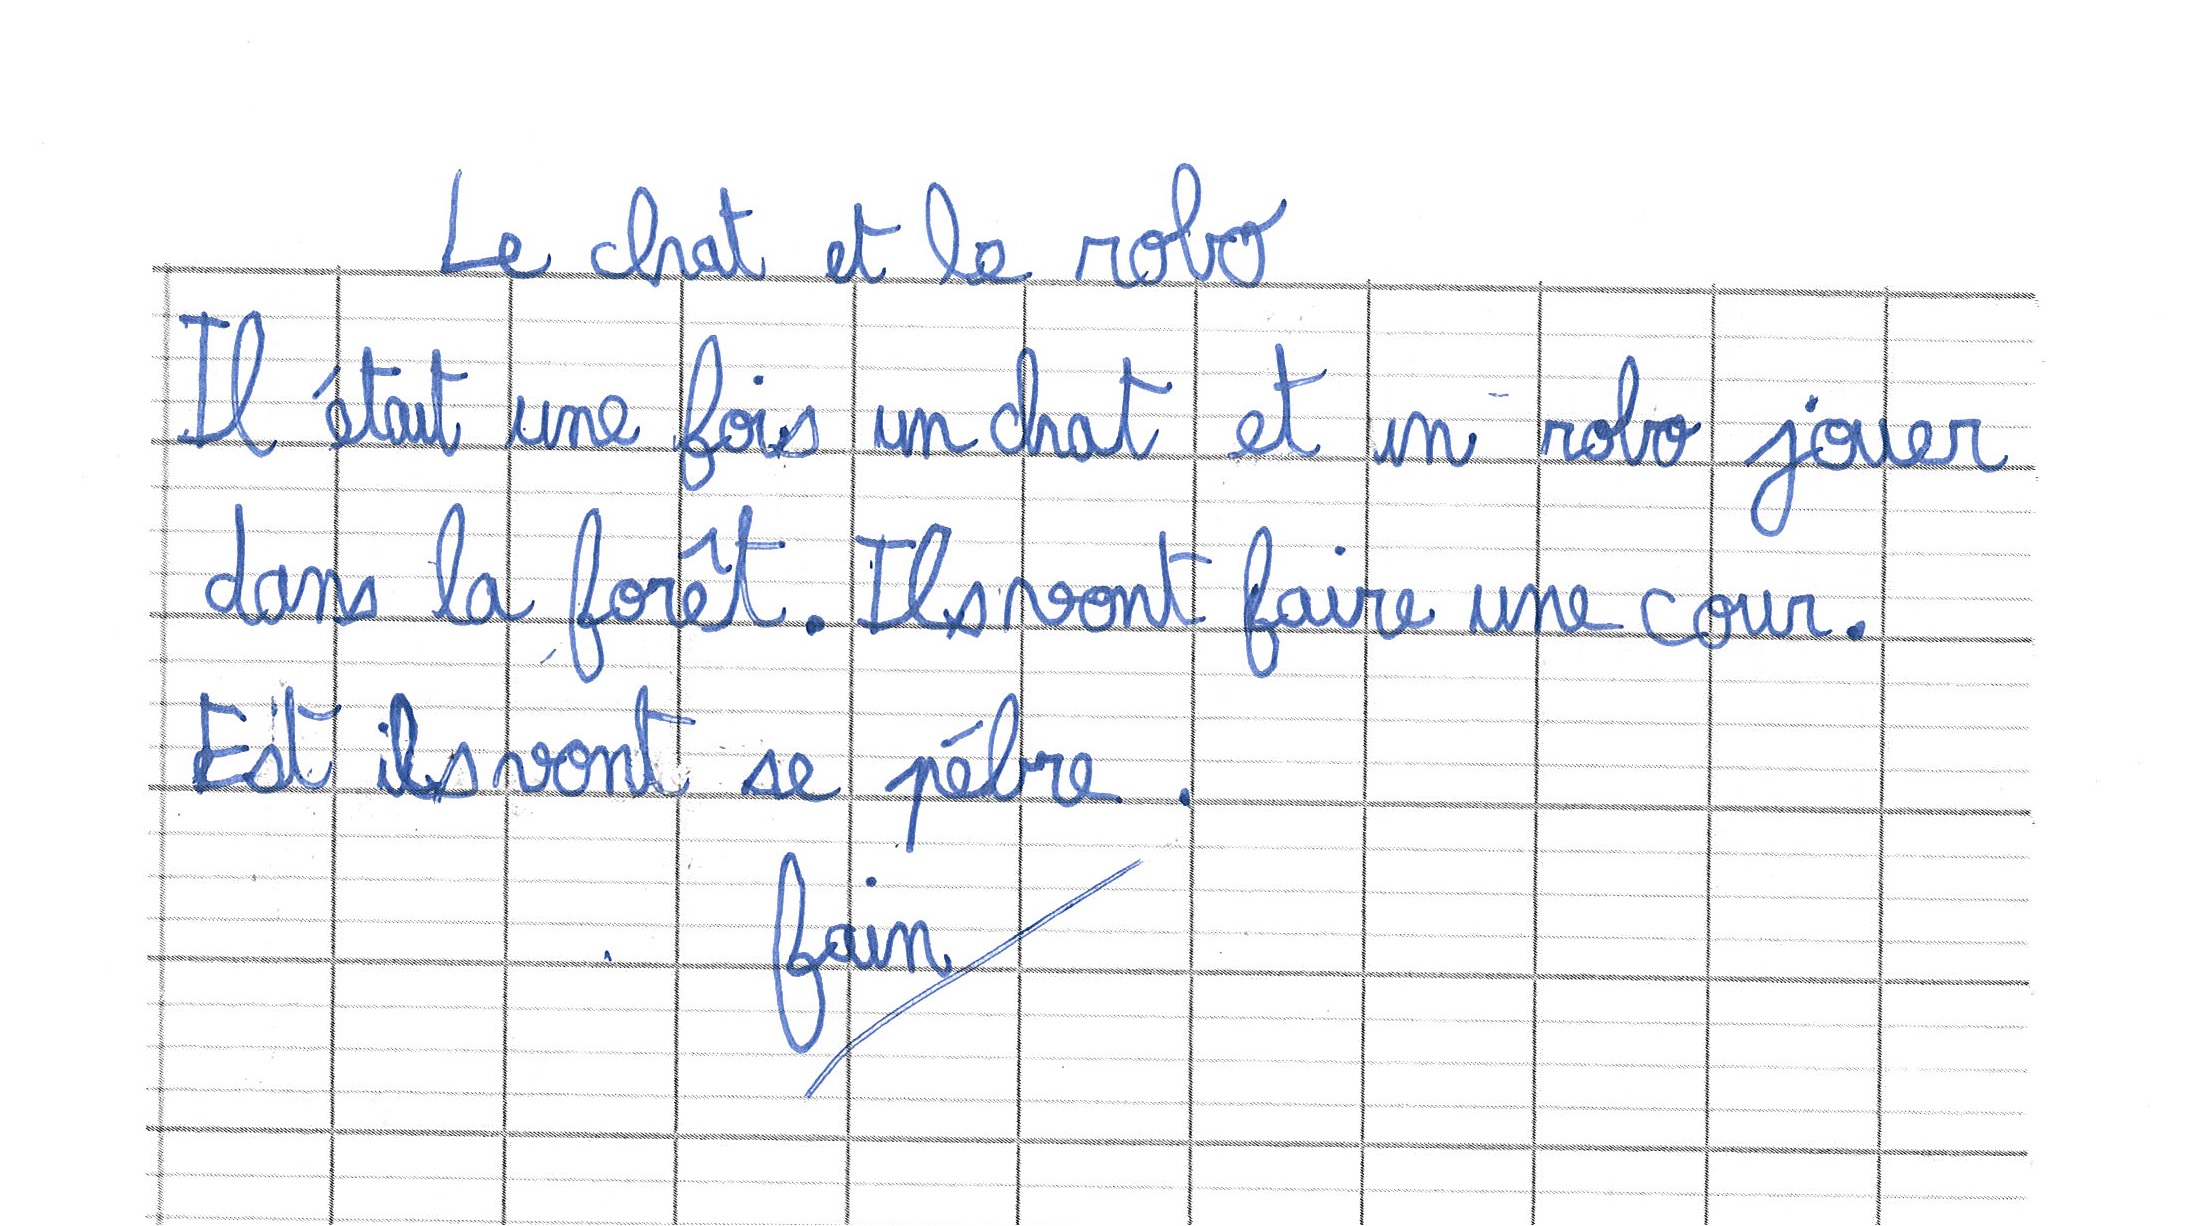 Le chat et le robo
Il était une fois un chat et un robo jouer
dans la forêt. Ils vont faire une cour.
Est ils vont se pébre.
fain